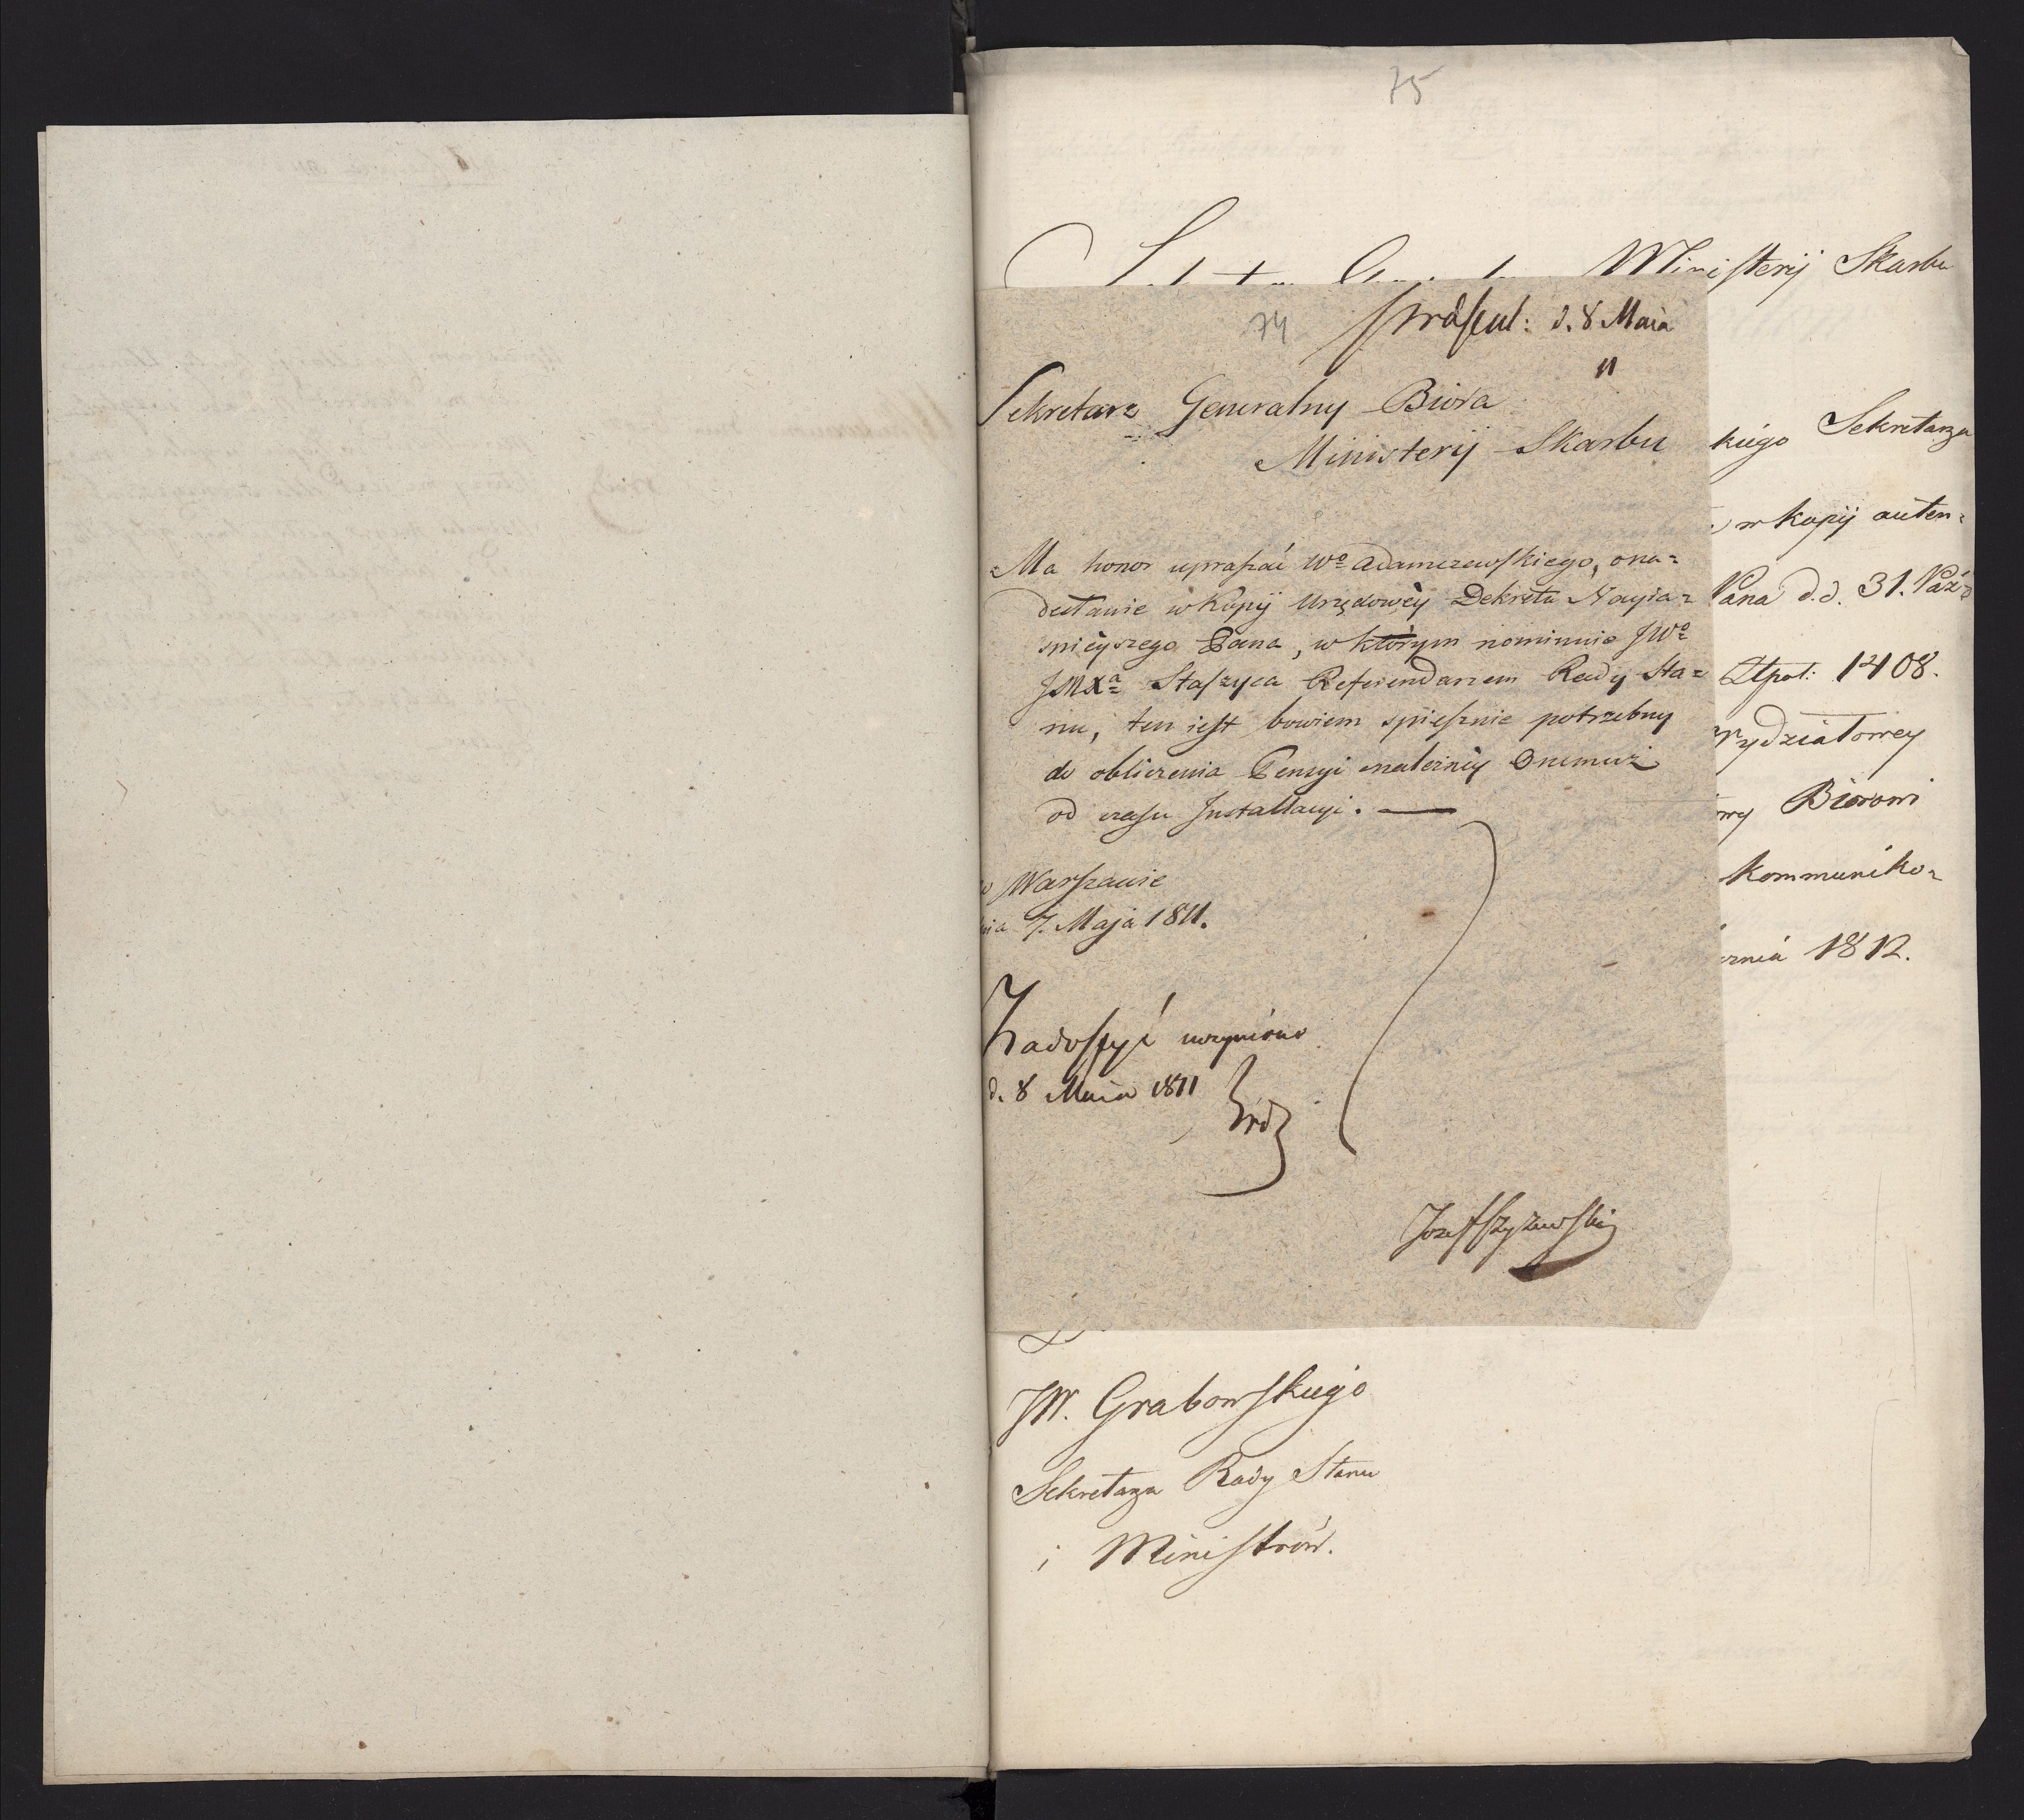 75
Ministerij Skarbu
74
præsent: d. 8 Maia
11
Sekretarz Generalny Bióra
Ministerij Skarbu
Ma honor upraszać Wo Adamczewskiego, o na=
desłanie w Kopij Urzędowéy Dekretu Nayia=
śnieyszego Pana, w którym nominuie JWo
JMXa Staszyca Referendarzem Rady Sta=
nu, ten iest bowiem spiesznie potrzebny
do obliczenia Pensyi należnéy Onemuż
od czasu Installacyi. —
w Warszawie
dnia 7. Maja 1811.
Zadosyć uczyniono
d. 8 Maia 1811
Jozef Szyszewski
kiégo Sekretarza
w kopij auten=
Pana d.d. 31. Paź=
Złpol: 1408.
wydziałowey
Biórowi
kommuniko=
cznia 1812.
JW. Grabowskiego
Sekretarza Rady Stanu
i Ministrów.